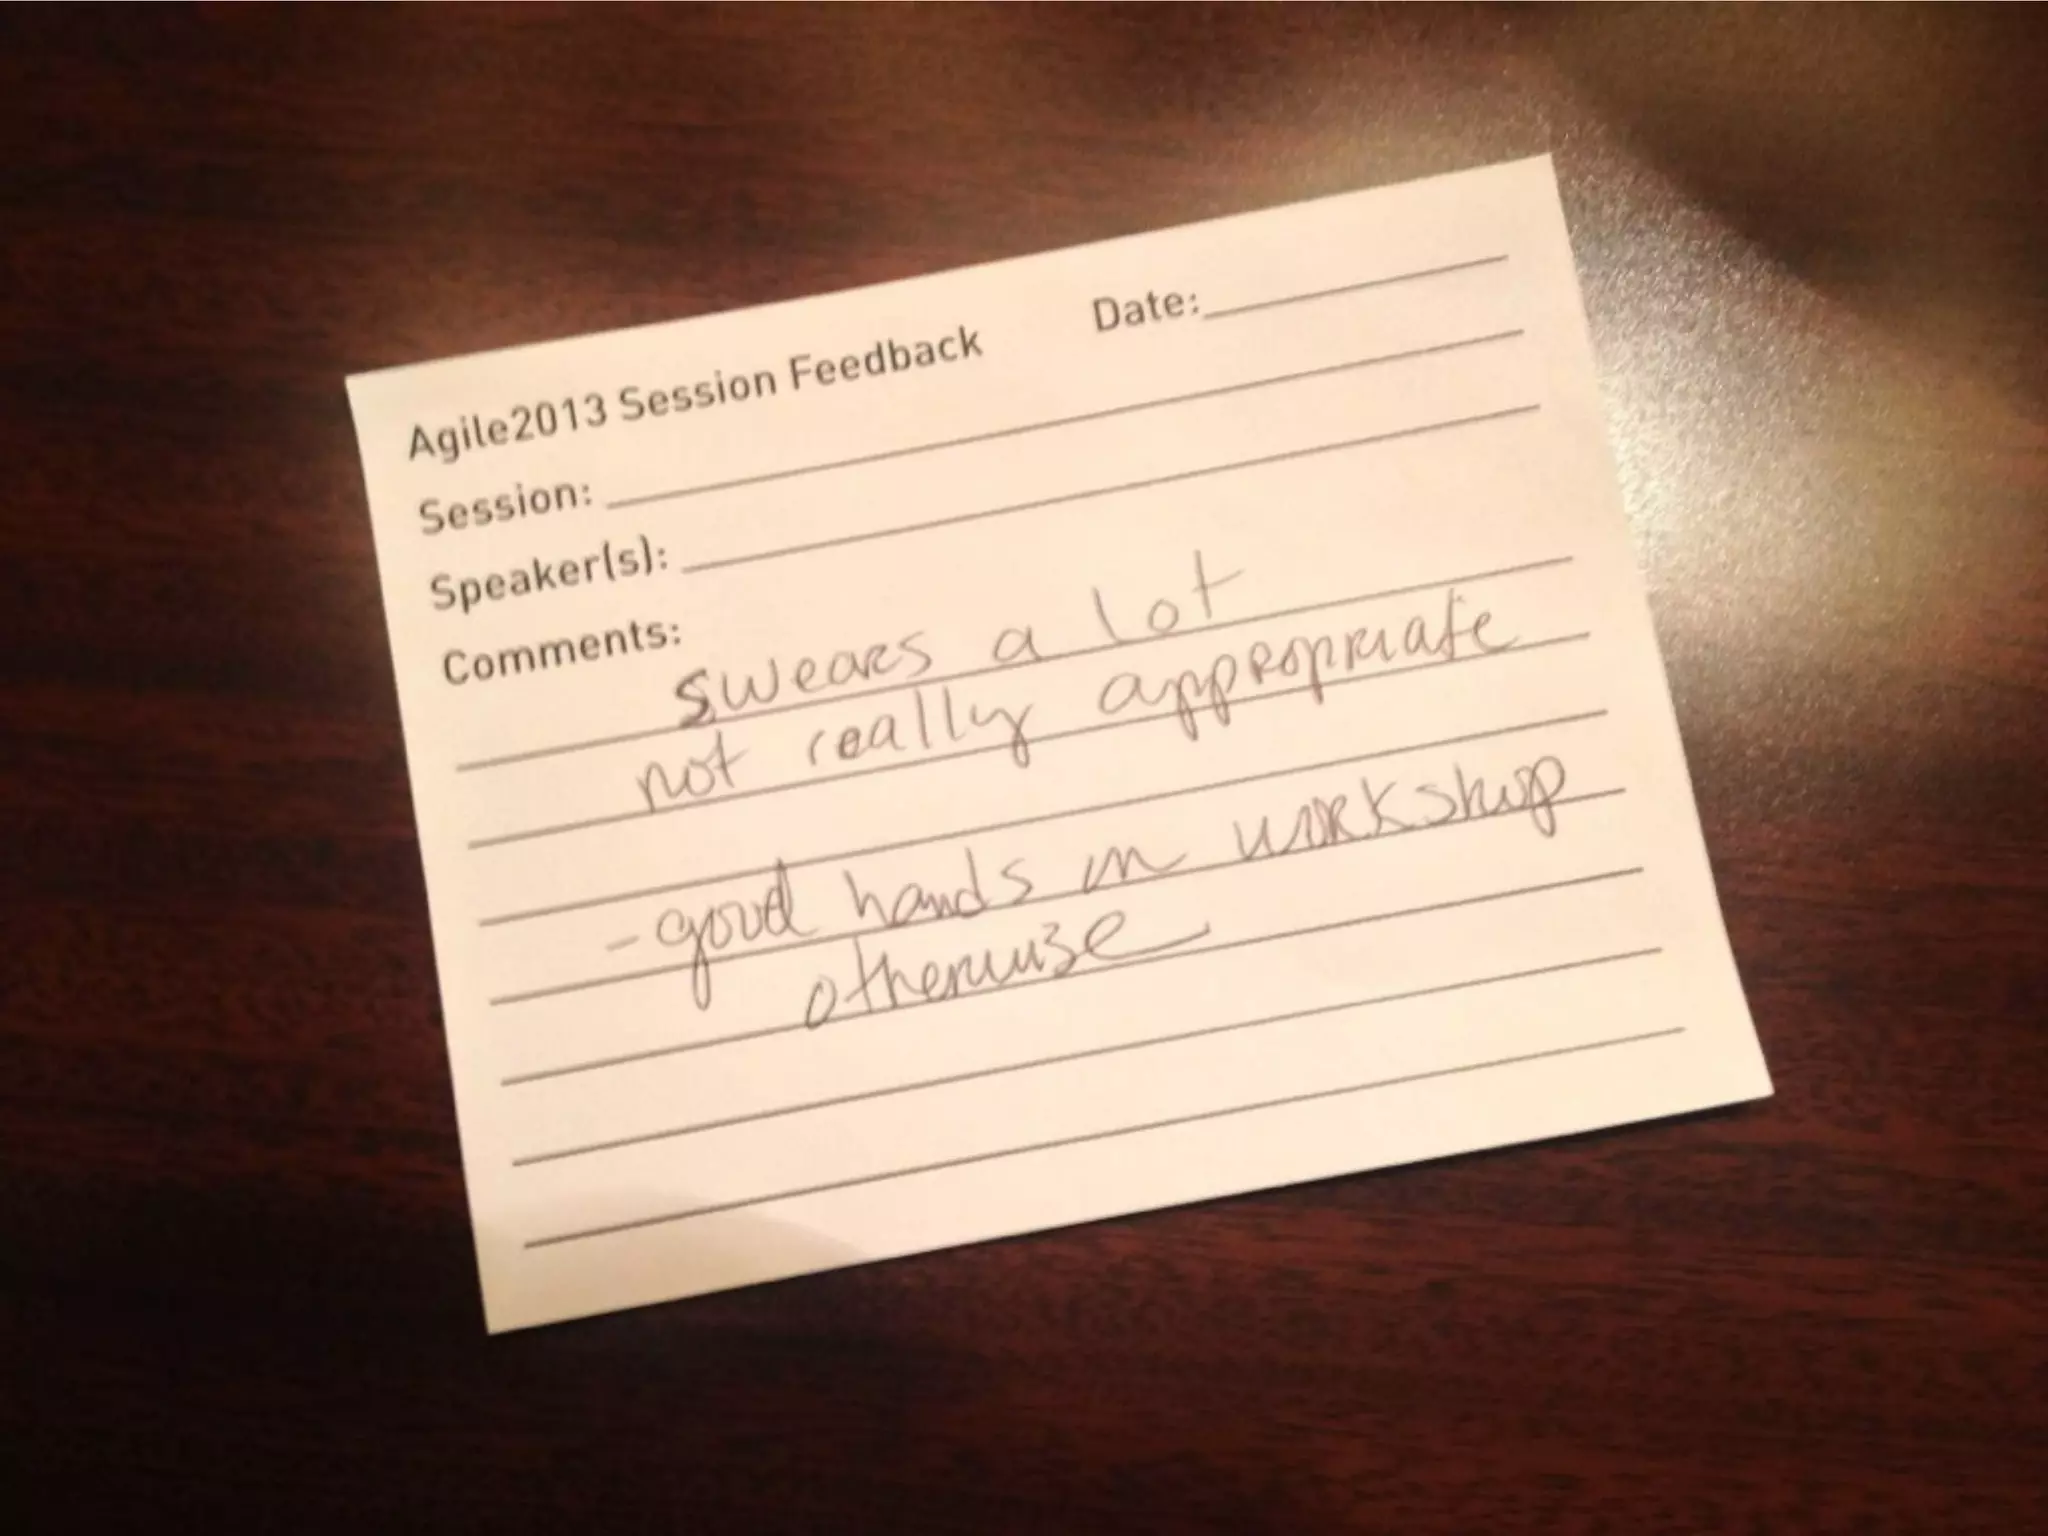 Agile2013 Session Feedback Date:
Session:
Speaker(s):
Comments:
swears a lot
not really appropriate
- good hands on workshop
otherwise